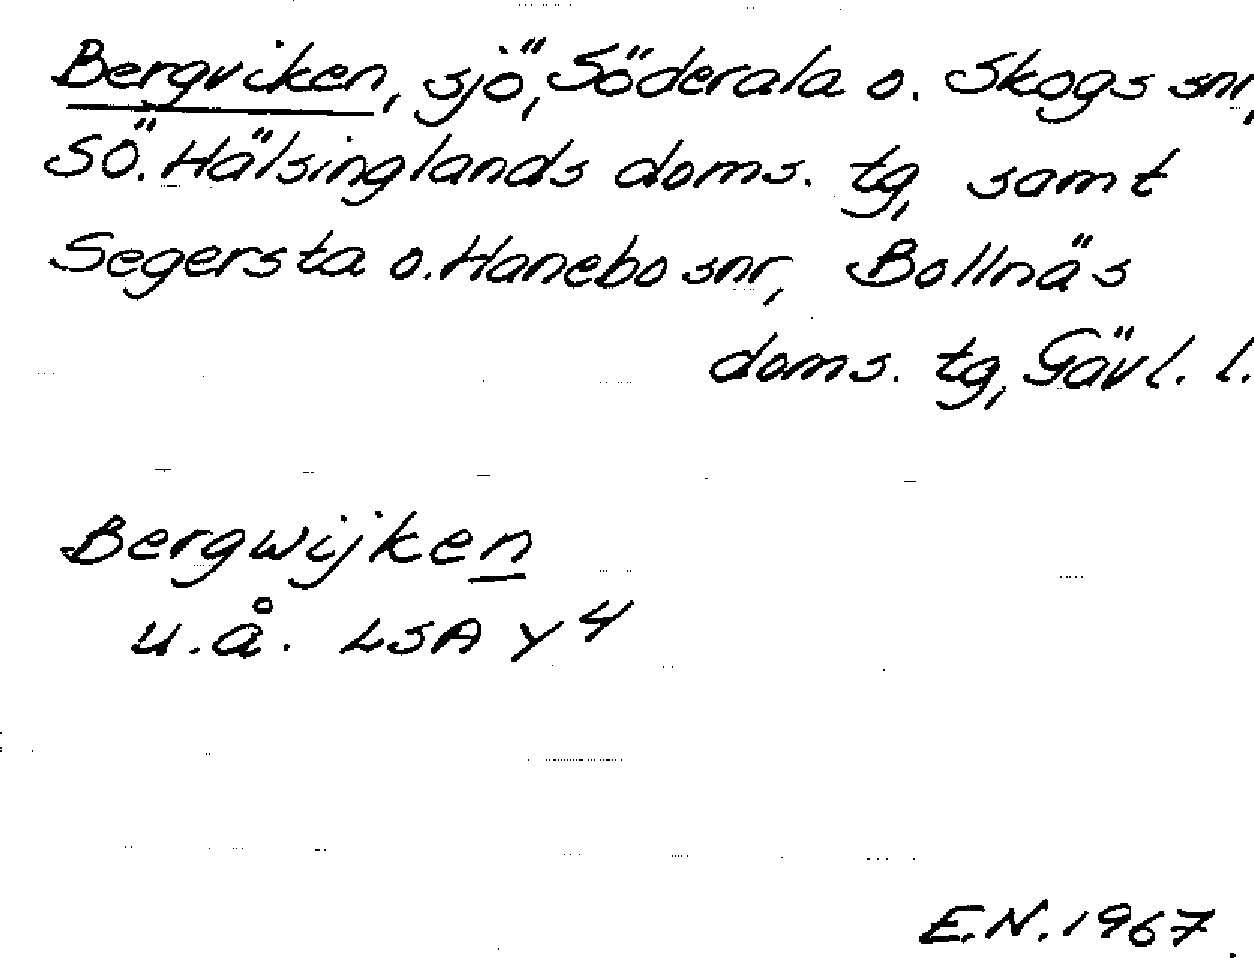 Bergviken, sjö, Söderala o. Skogs snr,
Sö. Hälsinglands doms. tg, samt
Segersta o. Hanebo snr, Bollnäs
doms. tg, Gävl. l.
Bergwijken
u.å. LSA Y 4
E.N. 1967